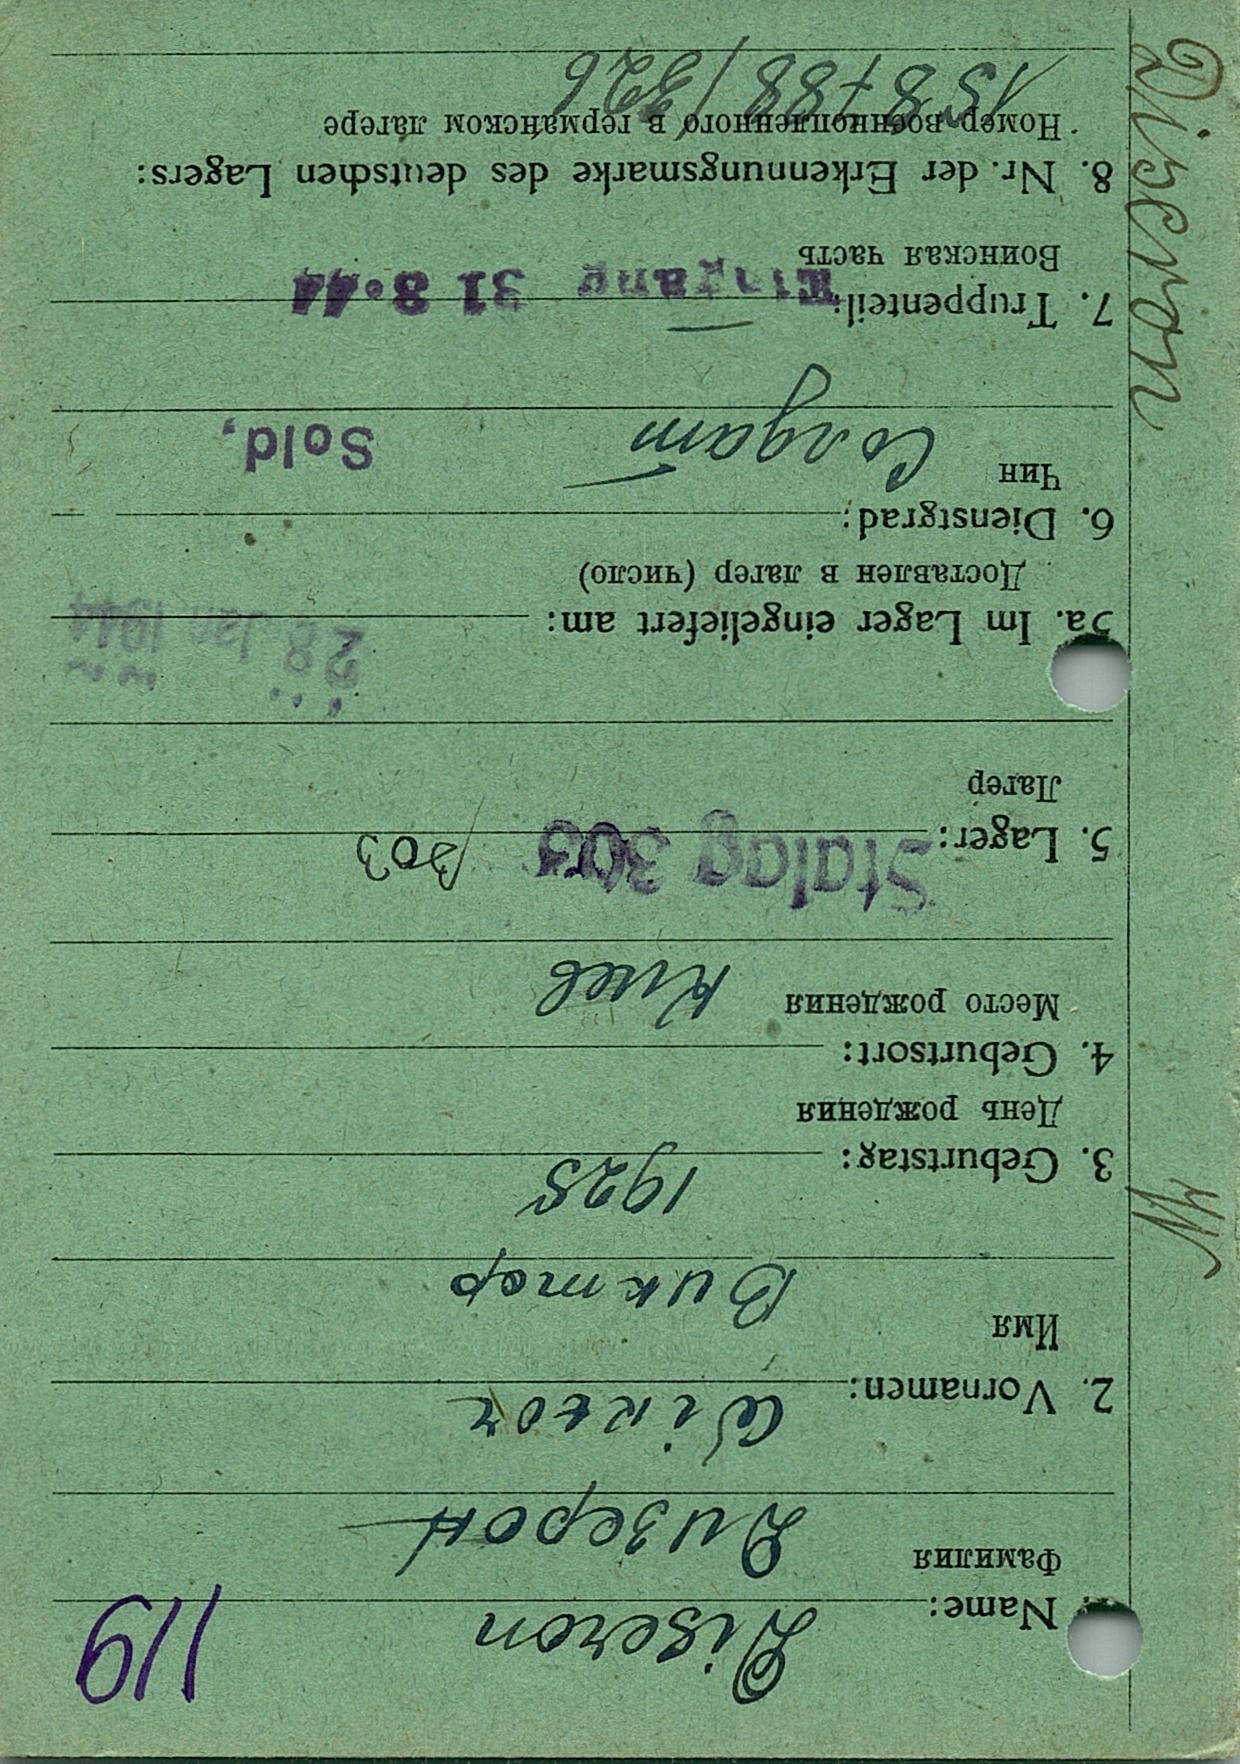 119
Name: Diseron
Фамилия Дизерон
2. Vornamen: Wiktor
Имя Виктор
3. Geburtstag: 1925
День рождения
4. Geburtsort:
Место рождения Киев
5. Lager: Stalag 303 303
Лагер
5a. Im Lager eingeliefert am: 28 Jan 1944
Доставлен в лагер (число)
6. Dienstgrad:
Чин Солдат Sold.
7. Truppenteil: Eingang 31 8·44
Воинская часть
8. Nr. der Erkennungsmarke des deutschen Lagers:
Номер военнопленного в германском лагере
/326
Diseron
W